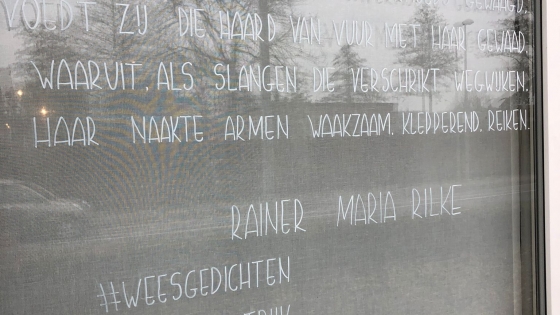 VOEDT ZIJ DIE HAARD VAN VUUR MET HAAR GEWAAD,
WAARUIT, ALS SLANGEN DIE VERSCHRIKT WEGWIJKEN,
HAAR NAAKTE ARMEN WAAKZAAM, KLEPPEREND, REIKEN.
RAINER MARIA RILKE
#WEESGEDICHTEN